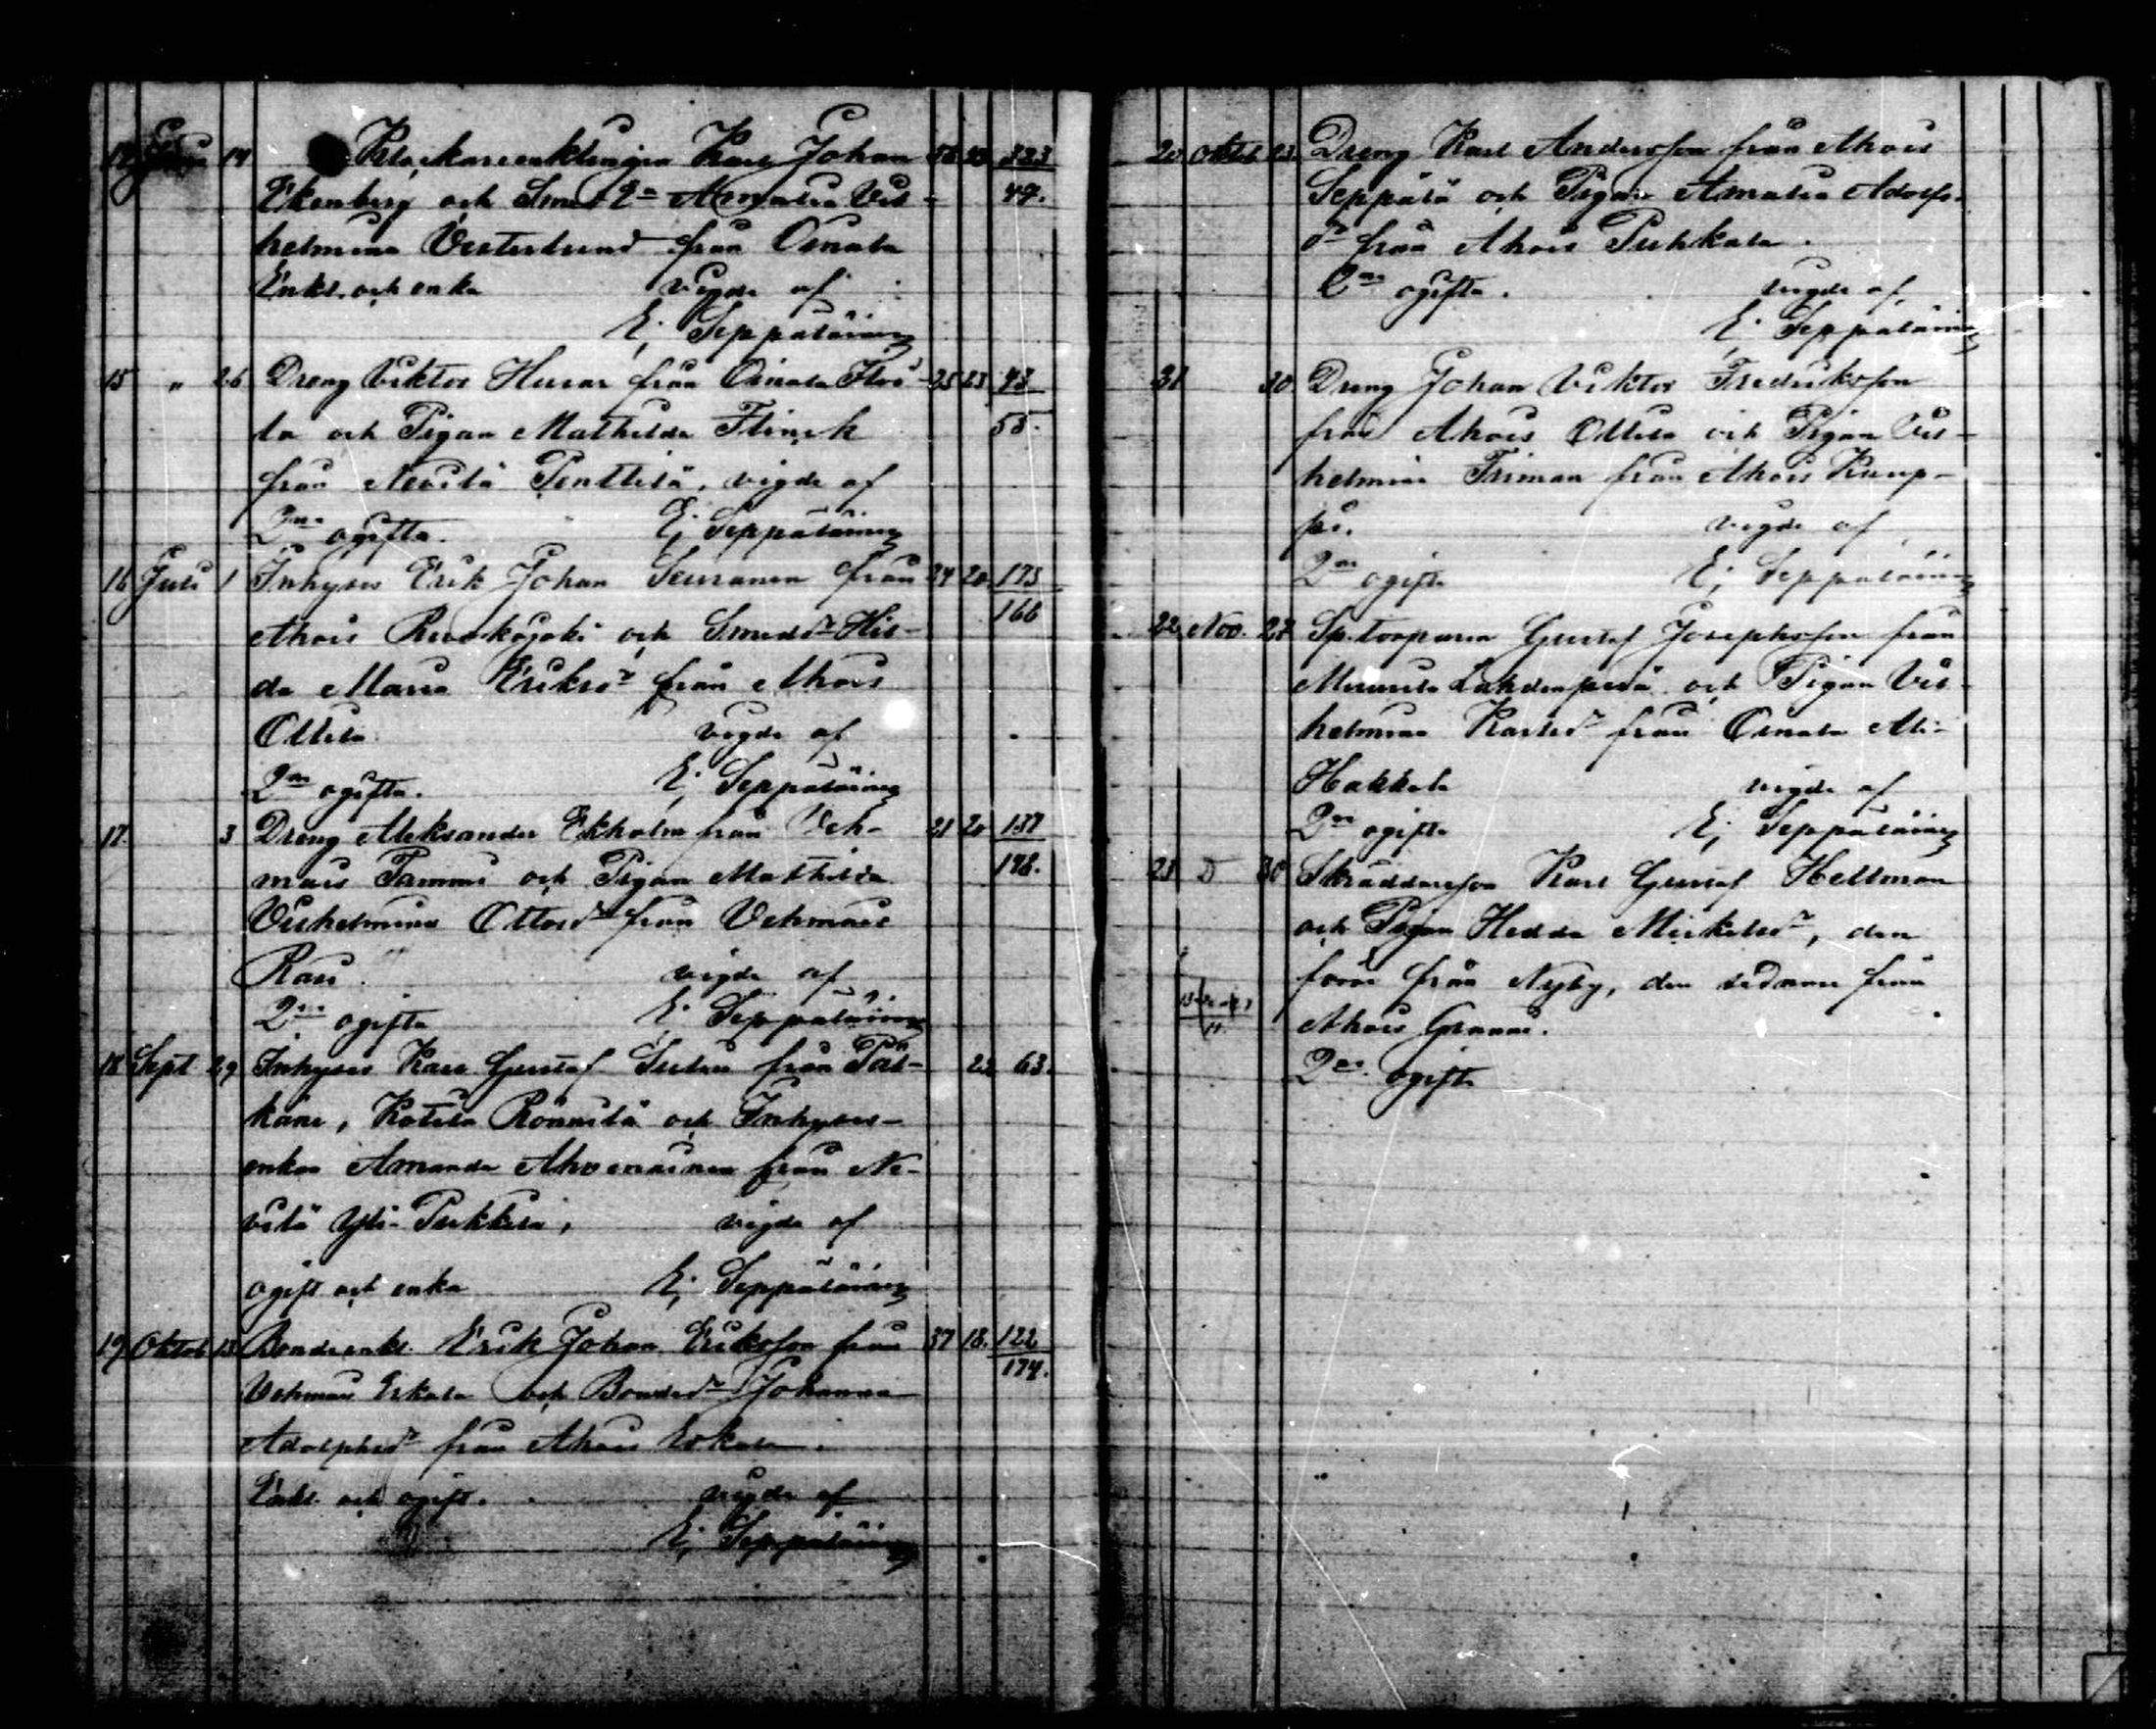 14 Klockareenklingen Karl Johan 323
Ekenberg och Smed d:r Amalia Vil- 47.
helmina Vesterlund från Oinala
Enkl. och enka vigde af
E; Seppäläinen
15 " 26 Dreng Viktor Hurar från Oinala Flos- 25 23 43
la och Pigan Mathilda Flinck 58.
från Nevilä Penttilä, vigde af
2ne ogifta. E; Seppäläinen
16 Juli 1 Inhyses Erik Johan Seuranen från 24 20 173
Ahois Ruokojoki och Smedsd:r Hil- 166
da Maria Eriksd:r från Ahois
Ollila vigde af
2ne ogifta. E; Seppäläinen
17. 3 Dreng Aleksander Ekholm från Veh- 21 20 137
mais Tammi och Pigan Mathilda 178.
Vilhelmina Ottosd:r från Vehmais
Rasi. vigde af
2ne ogifta E; Seppäläinen
18 Sept 29 Inhyses Karl Gustaf från Päl- 22 63.
käne, Kotila Rönnilä och Inhyses-
enkan Amanda Ahvenainen från Ne-
vilä Yli-Pukkila, vigde af
ogift och enka E; Seppäläinen
19 Oktob 13 Bondeenkl. Erik Johan Eriksson från 37 18. 122
Vehmais Erkala och Bonded:r Johanna 174.
Adolphsd:r från Ahois Eskola.
Enkl. och ogift. vigde af
E; Seppäläinen
20 Oktob 23. Dreng Karl Andersson från Ahois
Seppälä och Pigan Amalia Adolfs-
d:r från Ahois Puhkala.
2ne ogifta. vigde af
E; Seppäläinen
21 30. Dreng Johan Viktor Fredriksson
från Ahois Ollila och Pigan Vil-
helmina Friman från Ahois Kaup-
pi. vigde af
2ne ogifta E; Seppäläinen
22 Nov. 27 Sp. torparen Gustaf Josephsson från
Lahdenperä och Pigan Vil-
helmina Karlsd:r från Oinala Ali-
Hakkala vigde af
2ne ogifta E; Seppäläinen
23 D 30 Skräddaresson Karl Gustaf Hellman
och Pigan Hedda Mickelsd:r, den
förre från Nyby, den sednare från
Ahois
2ne ogifta